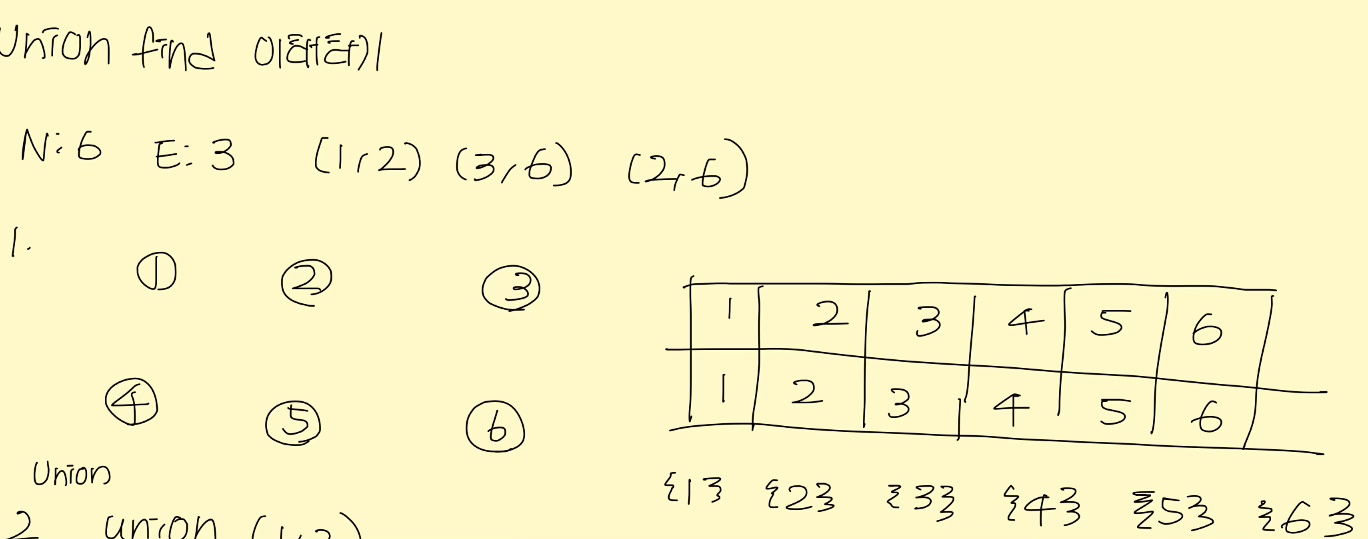 Union find 이해하기
N: 6 E: 3 (1,2) (3,6) (2,6)
1.
① ② ③
1 2 3 4 5 6
④ ⑤ ⑥
1 2 3 4 5 6
Union
{1} {2} {3} {4} {5} {6}
2 union (1,2)